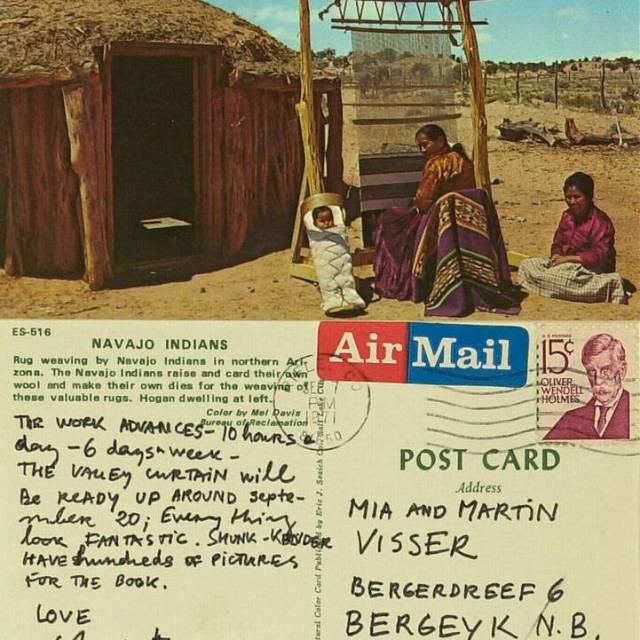 ES-516
NAVAJO INDIANS
Rug weaving by Navajo Indians in northern Ari-
zona. The Navajo Indians raise and card their own
wool and make their own dies for the weaving of
these valuable rugs. Hogan dwelling at left.
Color by Mel Davis
Bureau of Reclamation
THE WORK ADVANCES - 10 hours a
day - 6 days a week -
THE VALLEY CURTAIN will
Be READY UP AROUND Septe-
mber 20; Every thing
look FANTASTIC. SHUNK-KENDER
HAVE hundreds OF PICTURES
FOR THE BOOK.
LOVE
Air Mail
PM
1971
15¢
OLIVER
WENDELL
HOLMES
POST CARD
Address
MIA AND MARTIN
VISSER
BERGERDREEF 6
BERGEYK N.B.